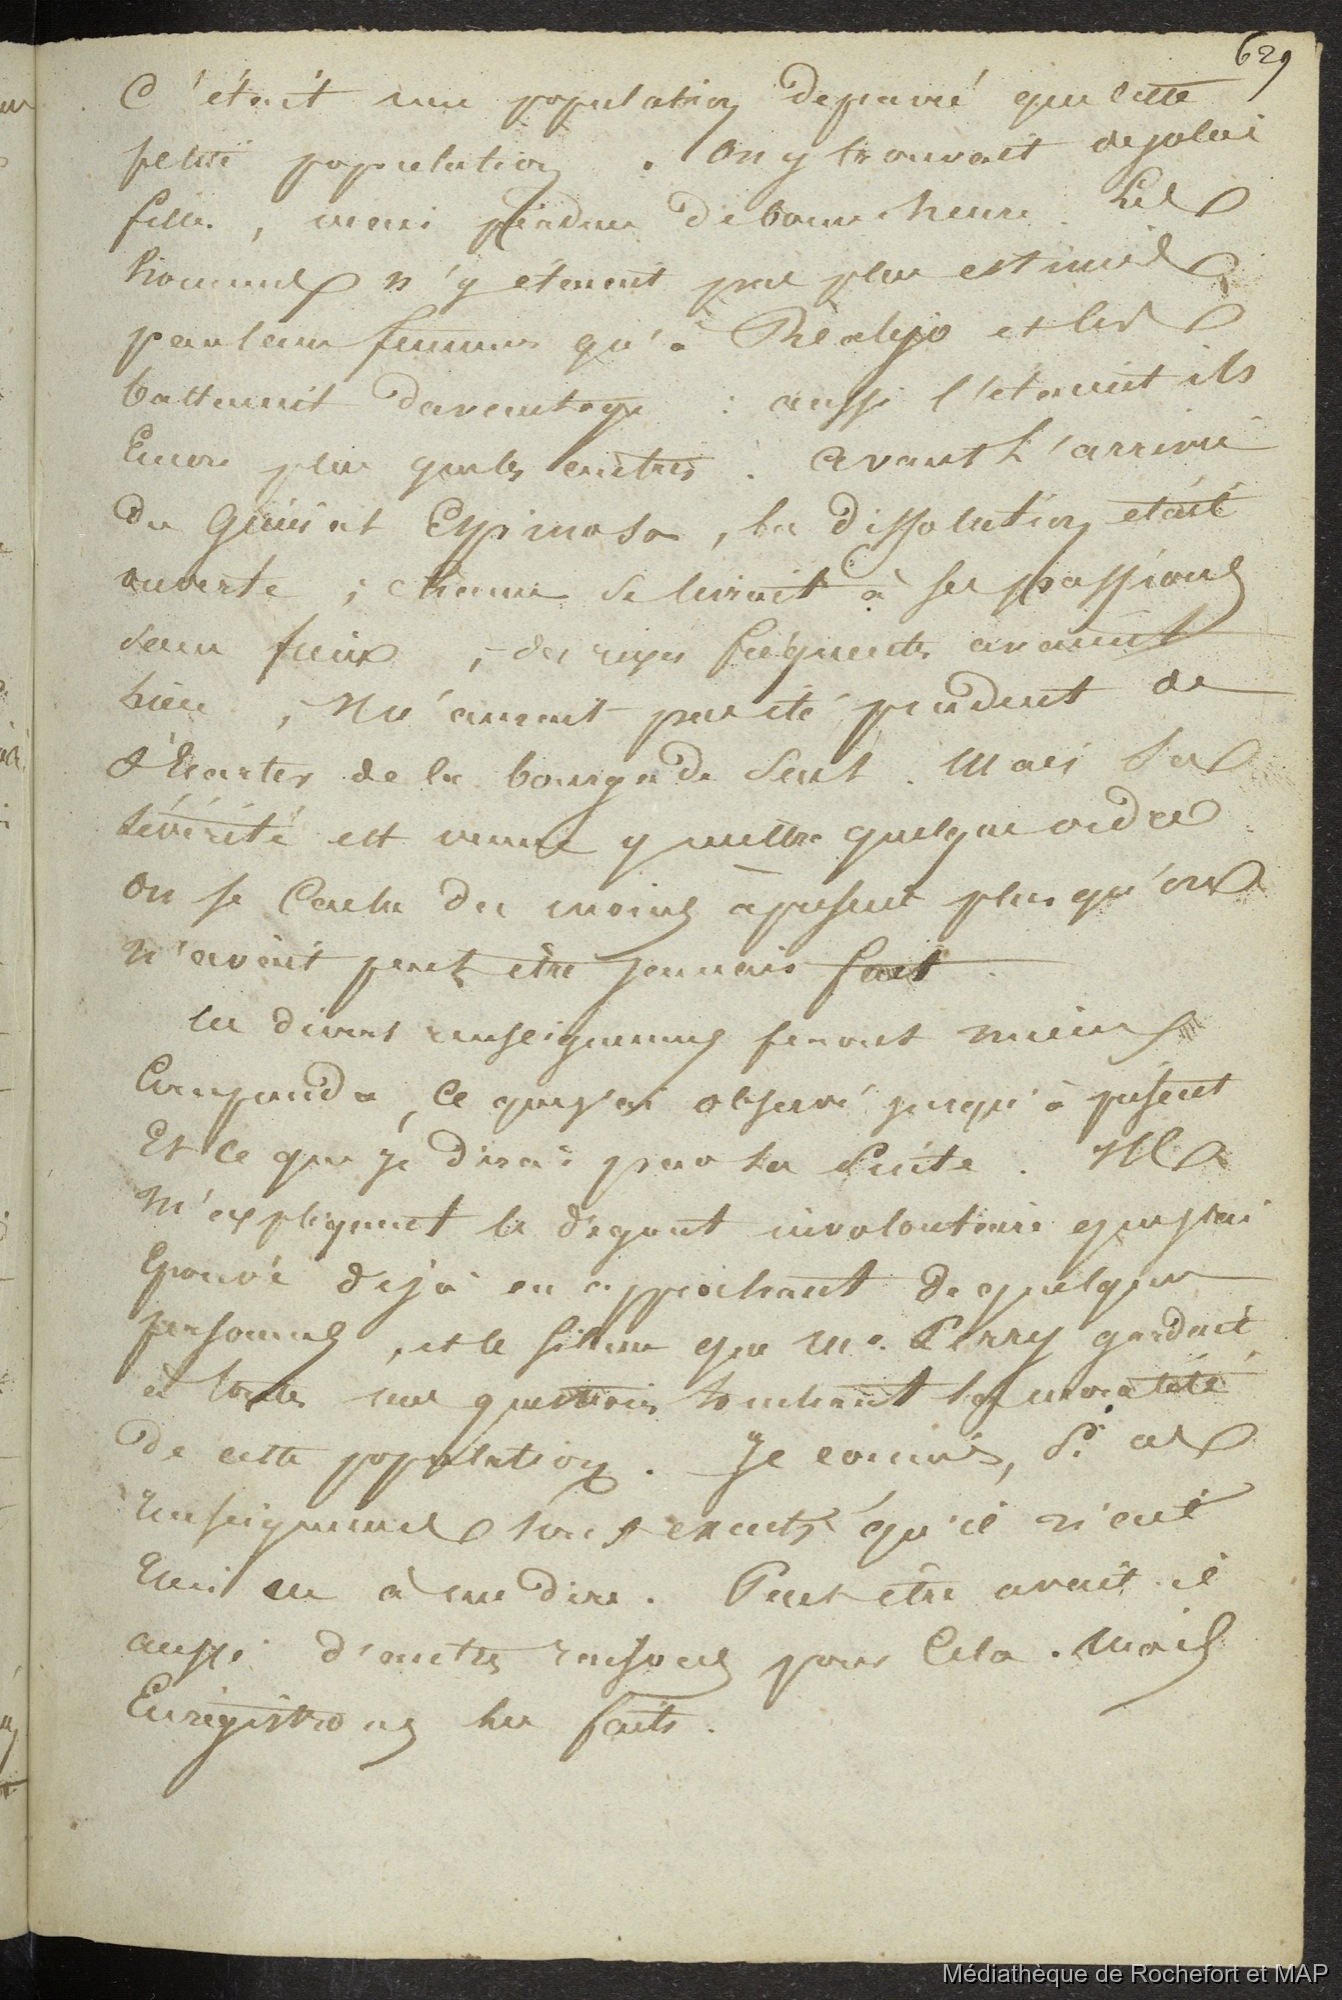 629
C'était une population depravé que cette
petite population. On y trouvait de jolies
filles, mais perdues de bonne heure. Les
hommes n'y étaient pas plus estimés
par leurs femmes qu'à Réalejo et les
battaient davantage : aussi l'étaient ils
Encore plus que les autres. avant L'arrivée
du Espinosa, la dissolution était
ouverte ; chacun se livrait à ses passions
sans frein ; des rixes fréquentes avaient
lieu ; Il n'aurait pas été prudent de
s'Ecarter de la bourgade seul. Mais sa
sévérité est venue y mettre quelque ordre
on se Cache du moins àpresent plus qu'on
n'avait peut être jamais fait
Ces divers renseignemens feront mieux
Comprendre Ce que j'ai observé jusqu'à présent
Et Ce que je dirai par la suite. Ils
m'expliquent le dégout involontaire que j'ai
Eprouvé déjà en approchant de quelques
personnes, et le silence que Mr. Perry gardait
à toutes mes questions touchant la moralité
de cette population. Je concois, Si ces
renseignemens sont exacts qu'il n'eut
rien à me dire. Peut être avait il
aussi d'autres raisons pour Cela. Mais
Enregistrons les faits.
Médiathèque de Rochefort et MAP